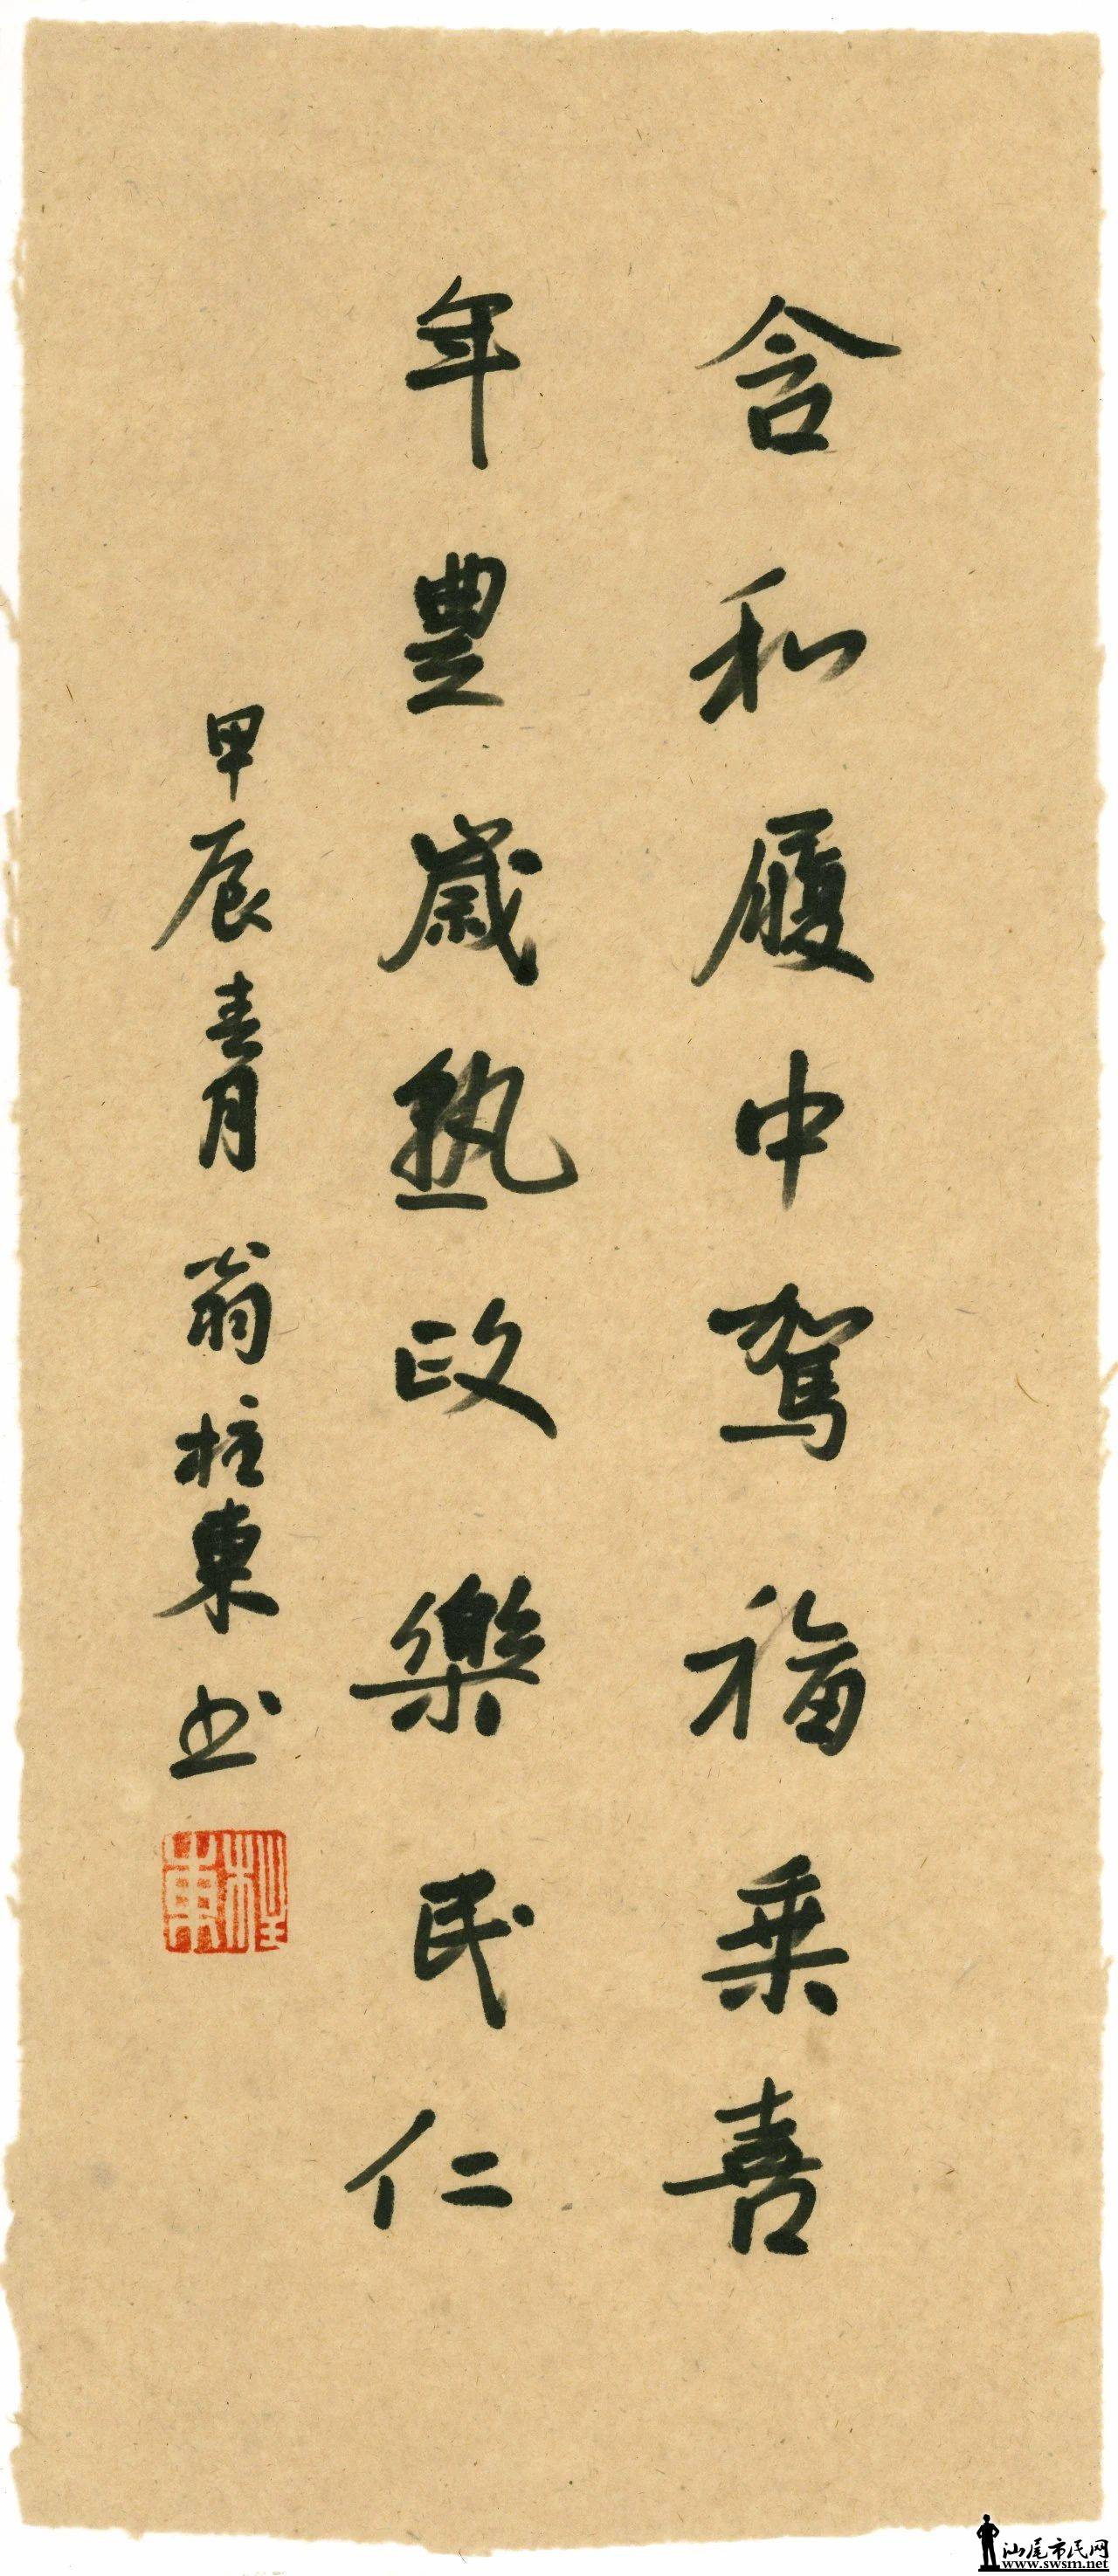 含和履中駕福乘喜
年豐歲熟政樂民仁
甲辰春月翁柱東书
柱東
汕尾市民网
www.swsm.net